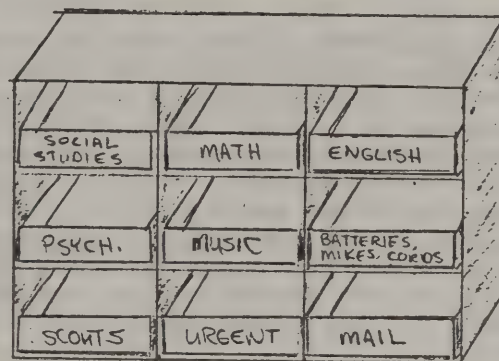 SOCIAL
STUDIES
MATH
ENGLISH
PSYCH.
MUSIC
BATTERIES,
MIKES, CORDS
SCOUTS
URGENT
MAIL